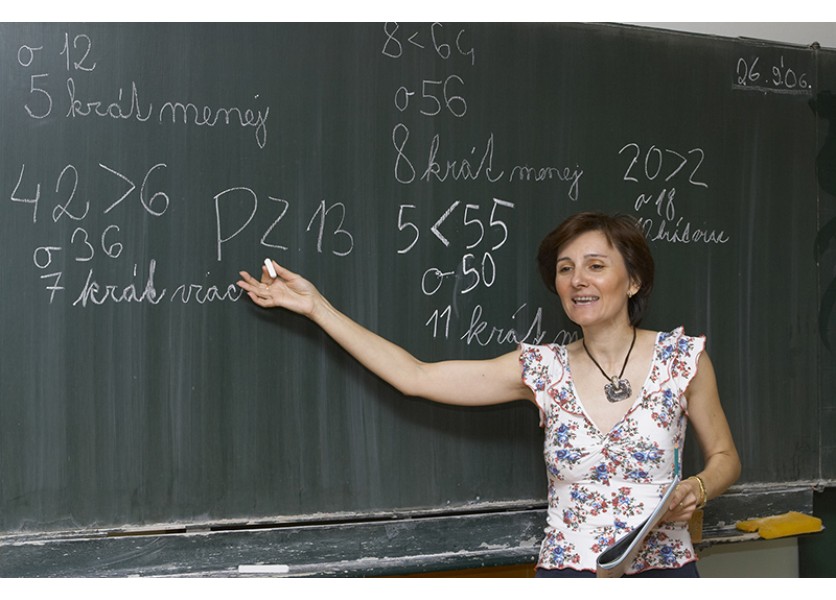 o 12
5 krát menej
42>6
o 36
7 krát viac
PZ. 13
8<64
o 56
8 krát menej
5<55
o 50
11 krát m
26. 9. 06.
20>2
o 18
krát viac